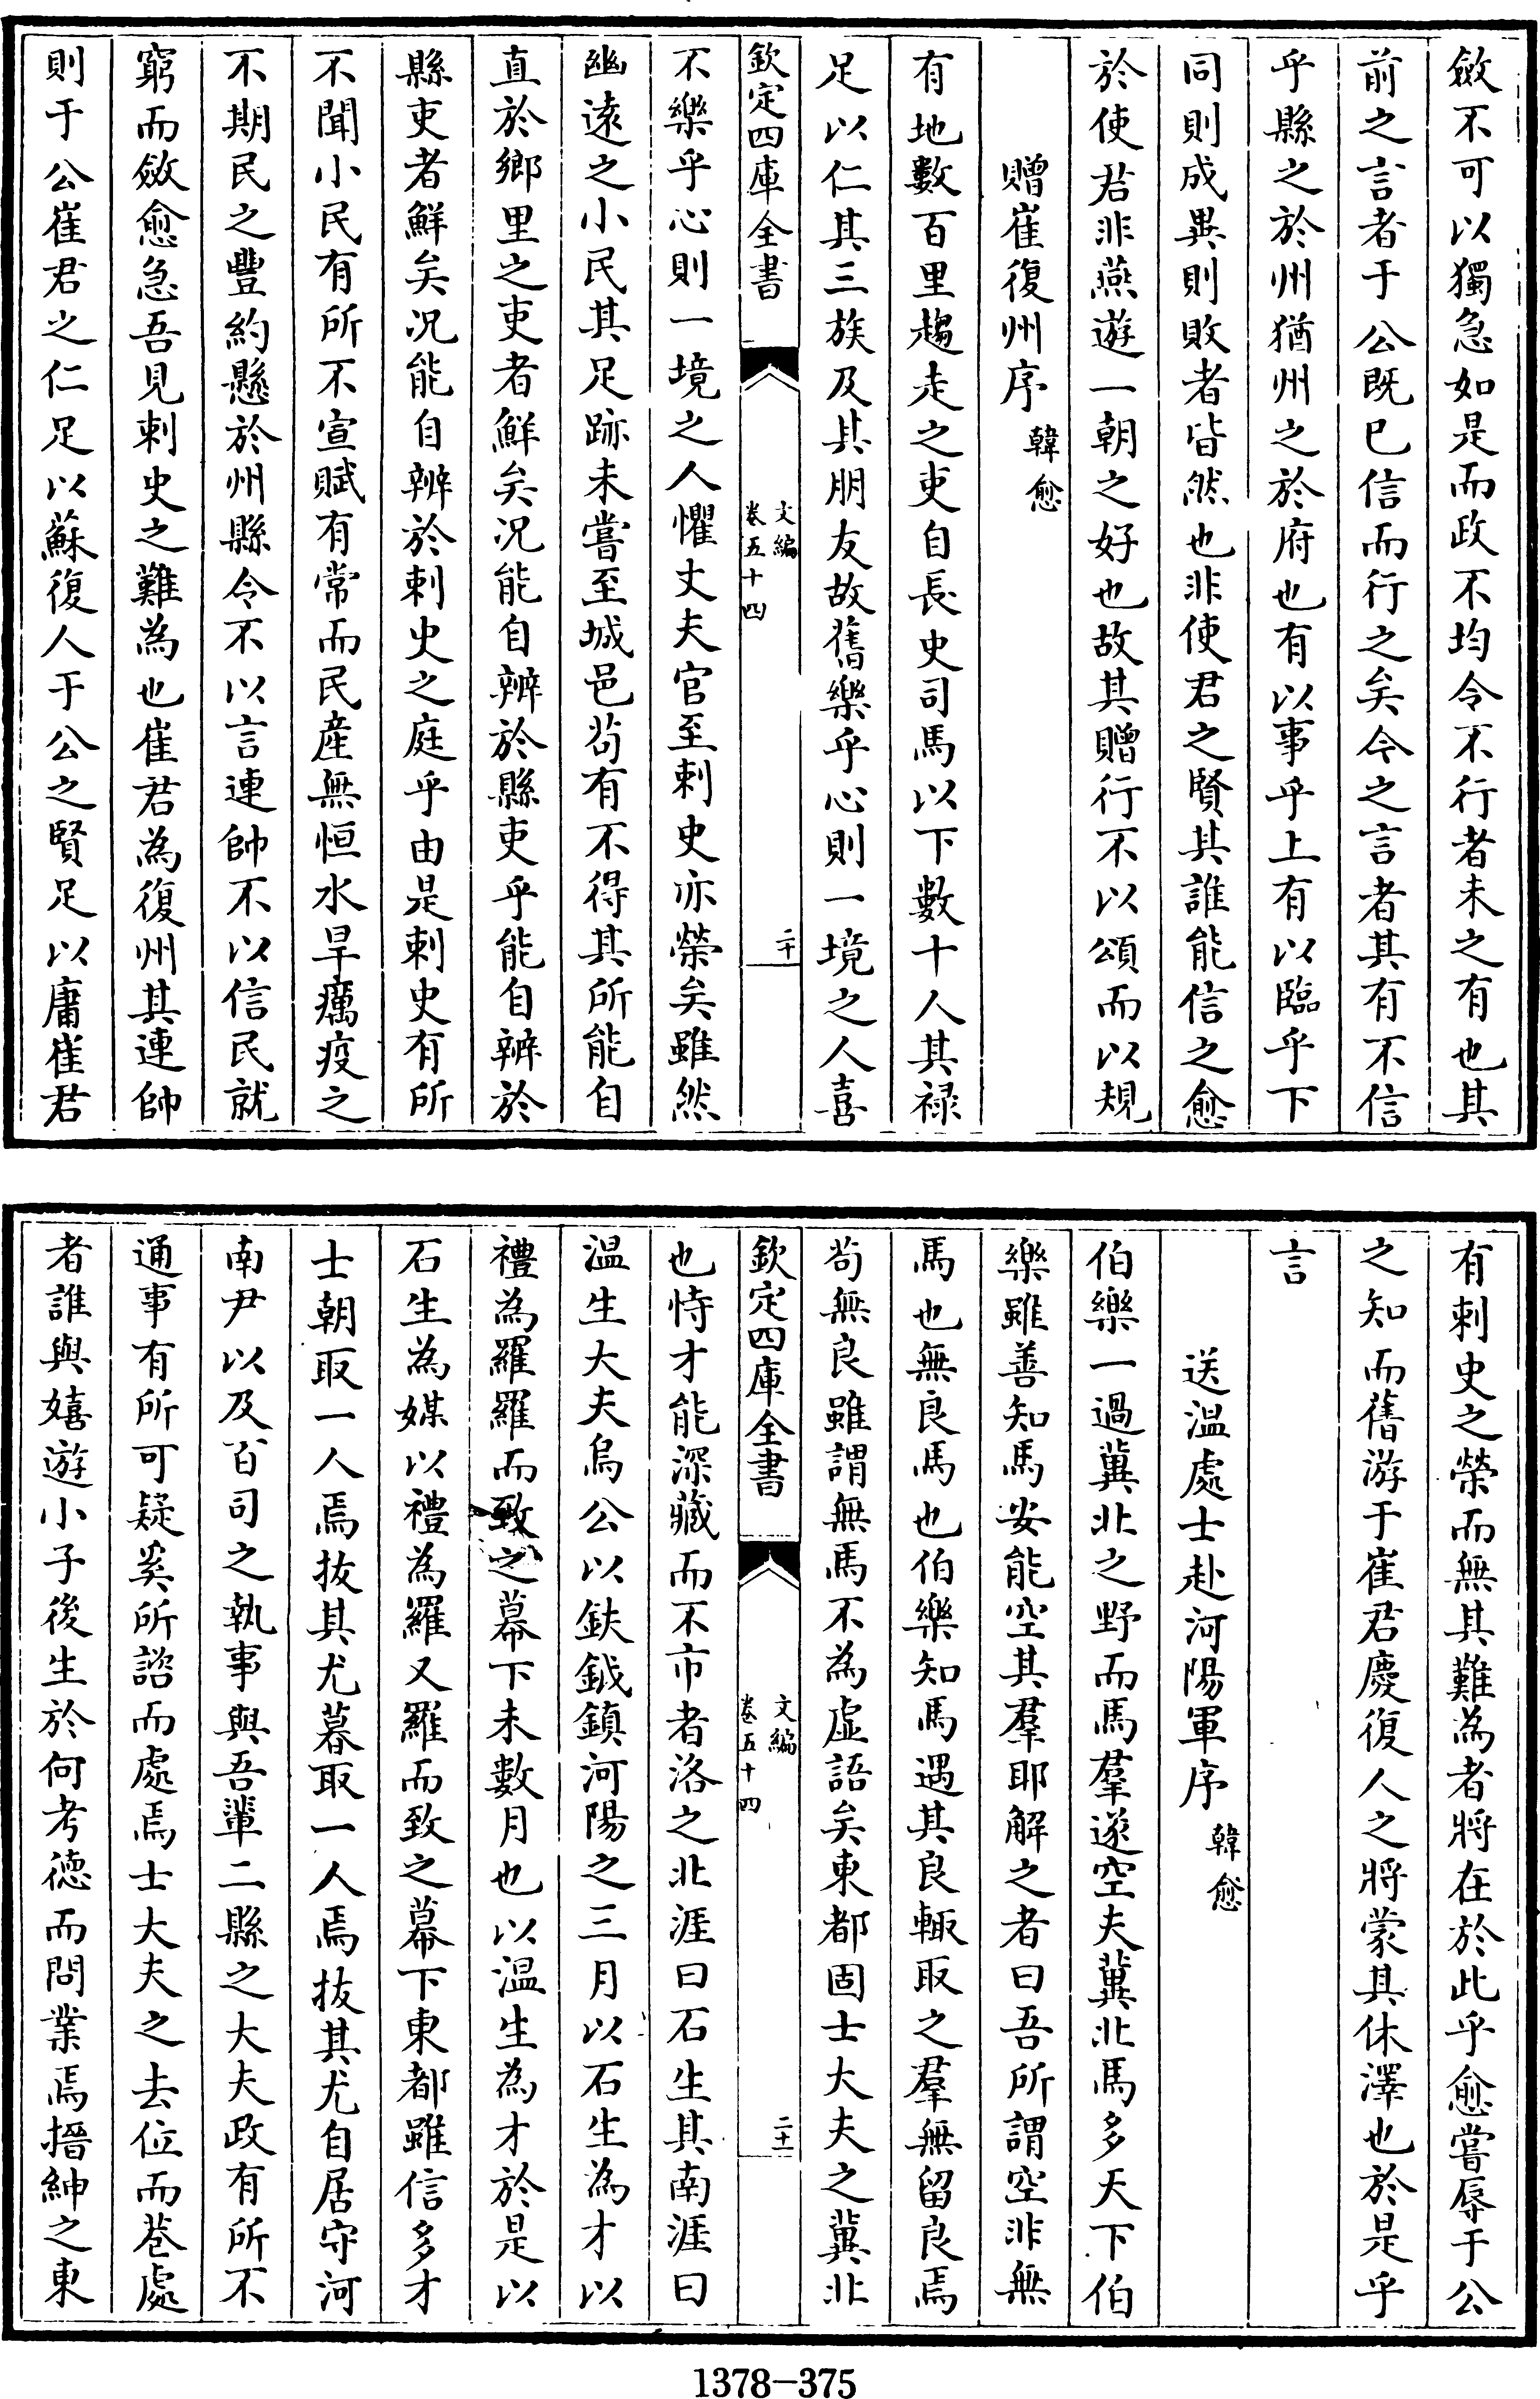 斂不可以獨急如是而政不均令不行者未之有也其
前之言者于公既已信而行之矣今之言者其有不信
乎縣之於州猶州之於府也有以事乎上有以臨乎下
同則成異則敗者皆然也非使君之賢其誰能信之愈
於使君非燕遊一朝之好也故其贈行不以頌而以規
贈崔復州序 韓愈
有地數百里趨走之吏自長史司馬以下數十人其祿
足以仁其三族及其朋友故舊樂乎心則一境之人喜
欽定四庫全書 文編 卷五十四 二十
不樂乎心則一境之人懼丈夫官至刺史亦榮矣雖然
幽遠之小民其足跡未嘗至城邑茍有不得其所能自
直於鄉里之吏者鮮矣况能自辨於縣吏乎能自辨於
縣吏者鮮矣况能自辨於刺史之庭乎由是刺史有所
不聞小民有所不宣賦有常而民產無恒水旱癘疫之
不期民之豐約懸於州縣令不以言連帥不以信民就
窮而斂愈急吾見刺史之難為也崔君為復州其連帥
則于公崔君之仁足以蘇復人于公之賢足以庸崔君
有刺史之榮而無其難為者將在於此乎愈嘗辱于公
之知而舊游于崔君慶復人之將蒙其休澤也於是乎
言
送溫處士赴河陽軍序 韓愈
伯樂一過冀北之野而馬羣遂空夫冀北馬多天下伯
樂雖善知馬安能空其羣耶解之者曰吾所謂空非無
馬也無良馬也伯樂知馬遇其良輙取之羣無留良焉
茍無良雖謂無馬不為虛語矣東都固士大夫之冀北
欽定四庫全書 文編 卷五十四 二十一
也恃才能深藏而不市者洛之北涯曰石生其南涯曰
溫生大夫烏公以鈇鉞鎮河陽之三月以石生為才以
禮為羅羅而致之幕下未數月也以溫生為才於是以
石生為媒以禮為羅又羅而致之幕下東都雖信多才
士朝取一人焉拔其尤暮取一人焉拔其尤自居守河
南尹以及百司之執事與吾輩二縣之大夫政有所不
通事有所可疑奚所諮而處焉士大夫之去位而巷處
者誰與嬉遊小子後生於何考德而問業焉搢紳之東
1378-375